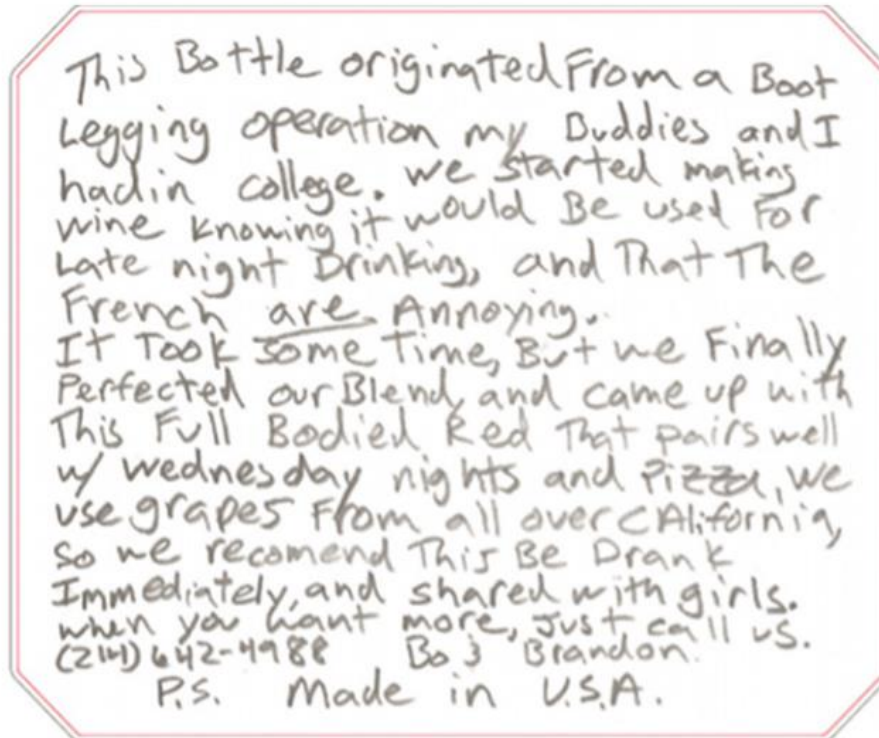 This Bottle originated From a Boot
Legging operation my Buddies and I
had in college. We started making
wine knowing it would Be used For
Late night Drinking, and That The
French are Annoying.
It Took some Time, But we Finally
Perfected our Blend, and came up with
This Full Bodied Red That pairs well
w/ Wednesday nights and Pizza, we
use grapes From all over CAlifornia,
so we recomend This Be Drank
Immediately, and shared with girls.
when you want more, Just call us.
(214) 642-4988 Bo & Brandon.
P.S. Made in U.S.A.